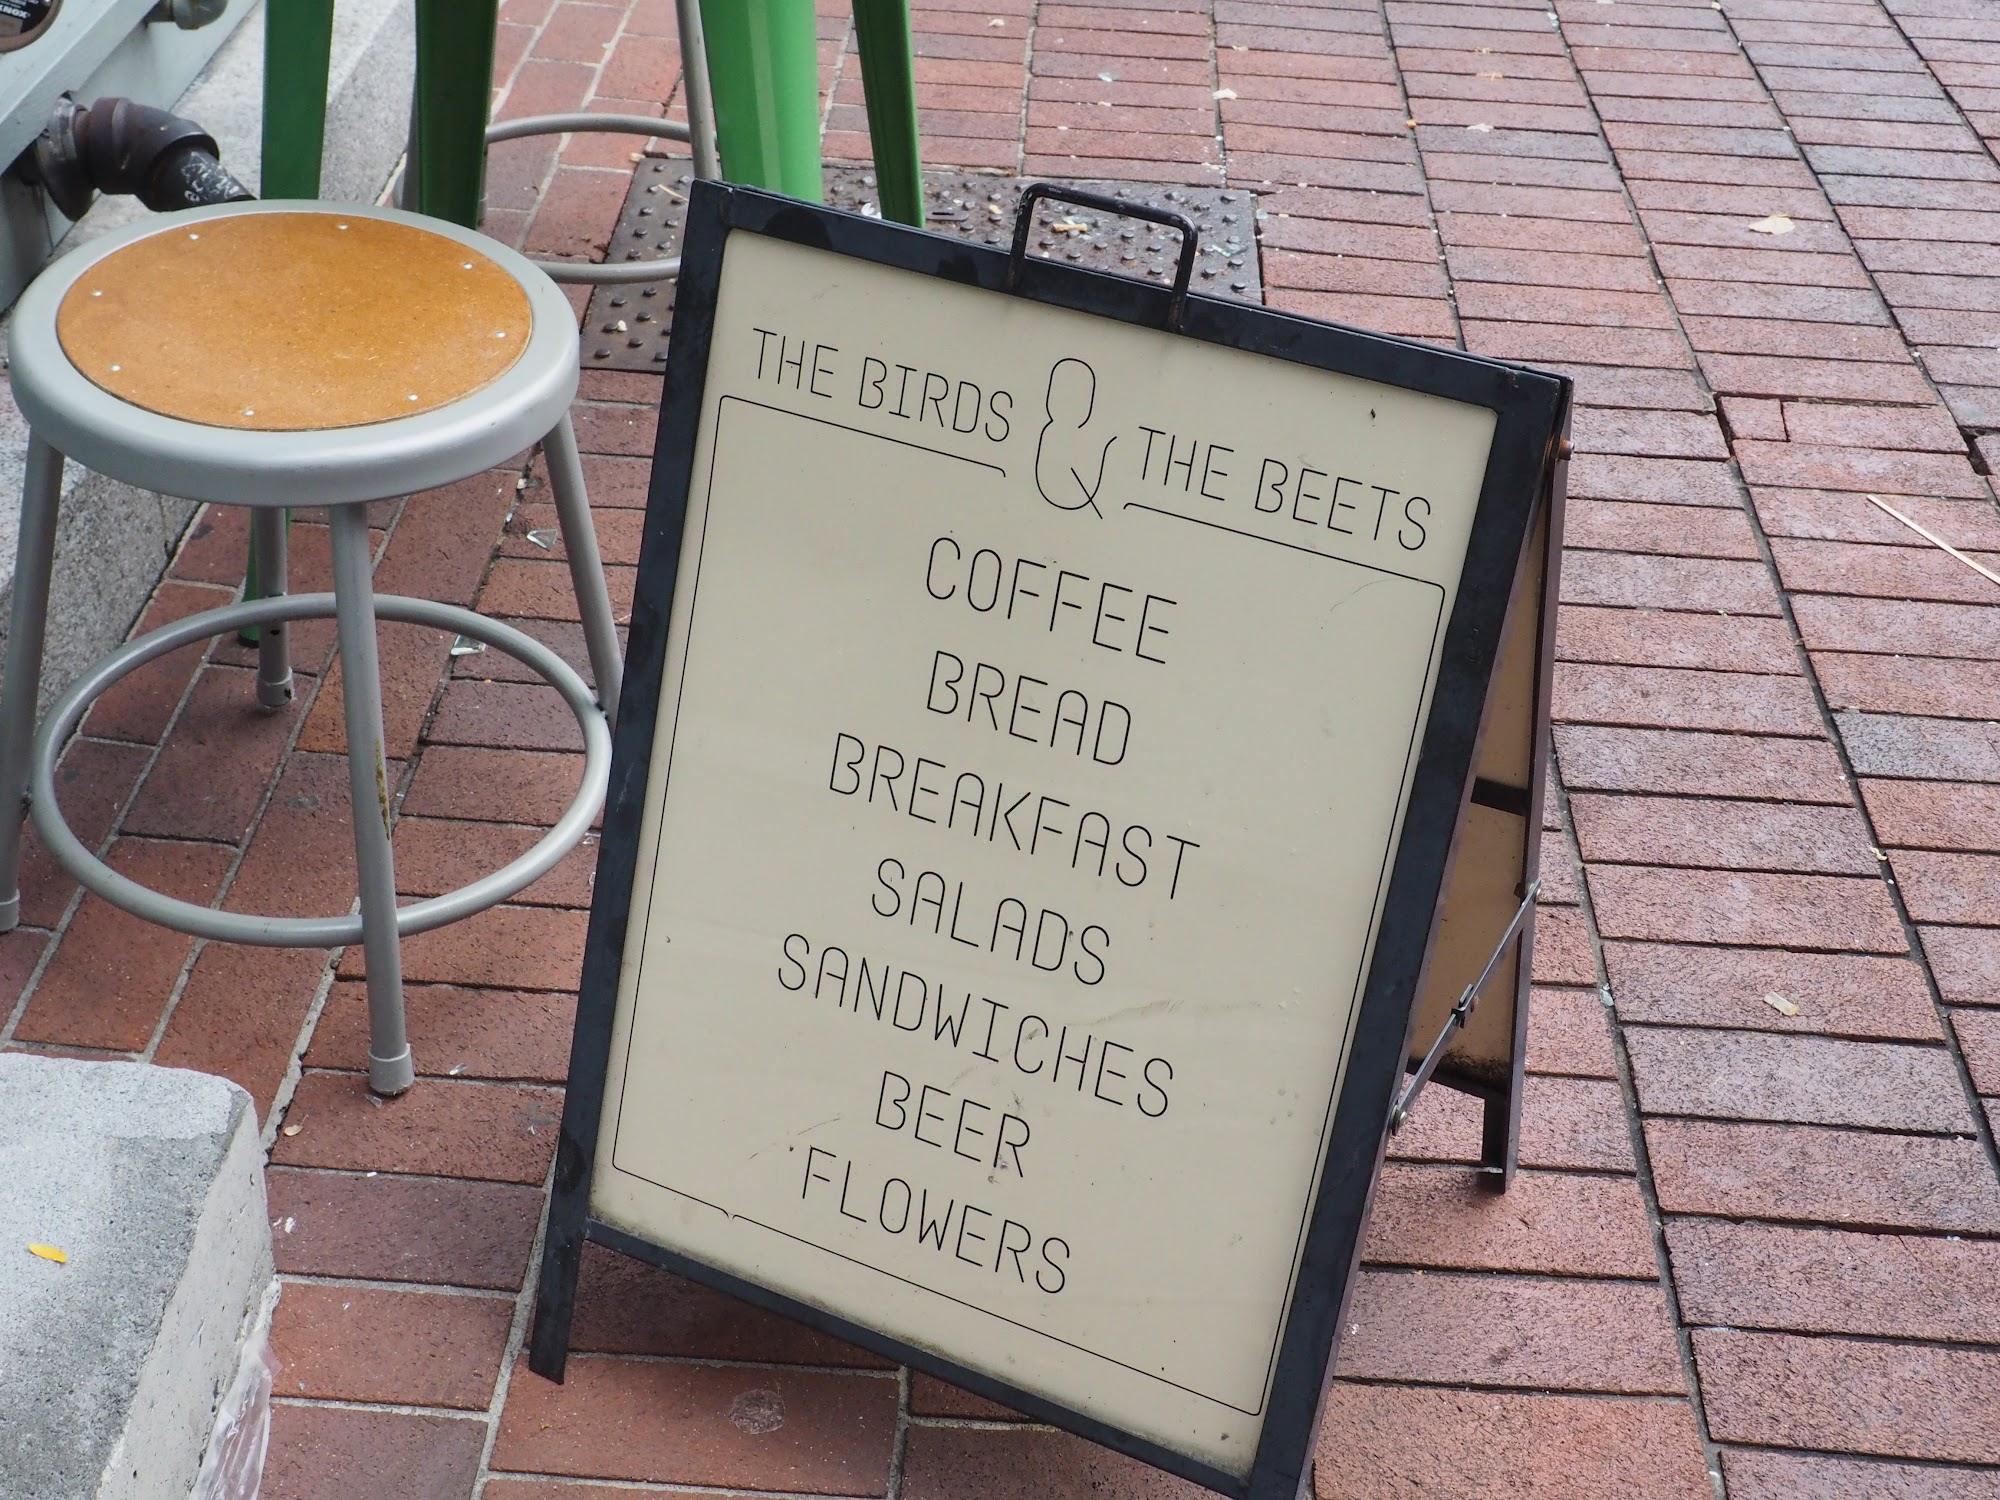 THE BIRDS & THE BEETS
COFFEE
BREAD
BREAKFAST
SALADS
SANDWICHES
BEER
FLOWERS